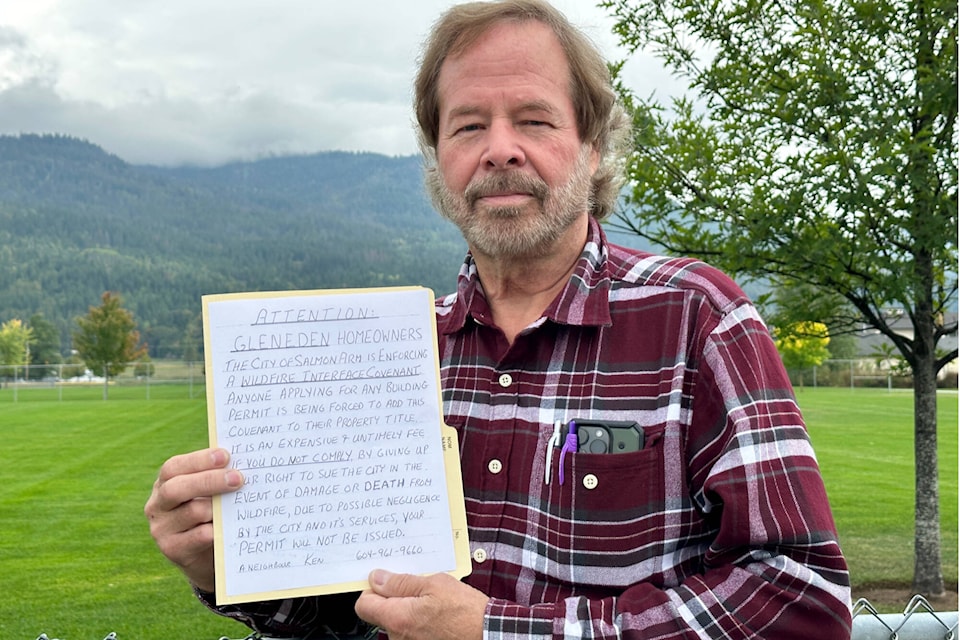 ATTENTION:
GLENEDEN HOMEOWNERS
THE CITY OF SALMON ARM IS ENFORCING
A WILDFIRE INTERFACE COVENANT
ANYONE APPLYING FOR ANY BUILDING
PERMIT IS BEING FORCED TO ADD THIS
COVENANT TO THEIR PROPERTY TITLE.
IT IS AN EXPENSIVE & UNTIMELY FEE
IF YOU DO NOT COMPLY, BY GIVING UP
OUR RIGHT TO SUE THE CITY IN THE
EVENT OF DAMAGE OR DEATH FROM
WILDFIRE, DUE TO POSSIBLE NEGLIGENCE
BY THE CITY AND IT'S SERVICES, YOUR
PERMIT WILL NOT BE ISSUED.
A NEIGHBOUR KEN 604-961-9660
NOM
NAME
No